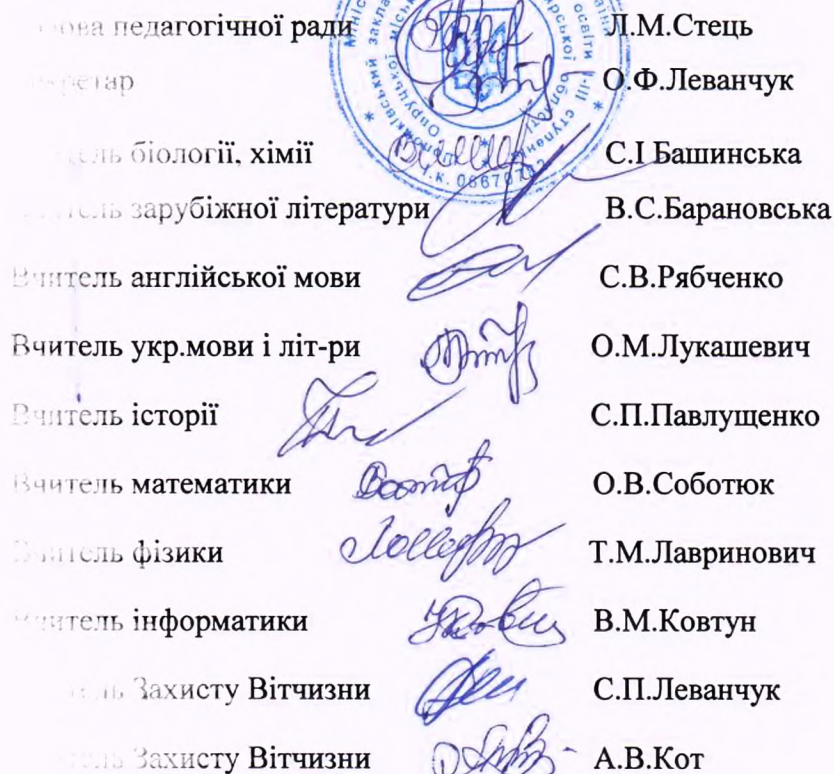 Голова педагогічної ради Л.М.Стець
Секретар О.Ф.Леванчук
Вчитель біології, хімії С.І Башинська
Вчитель зарубіжної літератури В.С.Барановська
Вчитель англійської мови С.В.Рябченко
Вчитель укр.мови і літ-ри О.М.Лукашевич
Вчитель історії С.П.Павлущенко
Вчитель математики О.В.Соботюк
Вчитель фізики Т.М.Лавринович
Вчитель інформатики В.М.Ковтун
Вчитель Захисту Вітчизни С.П.Леванчук
Вчитель Захисту Вітчизни А.В.Кот